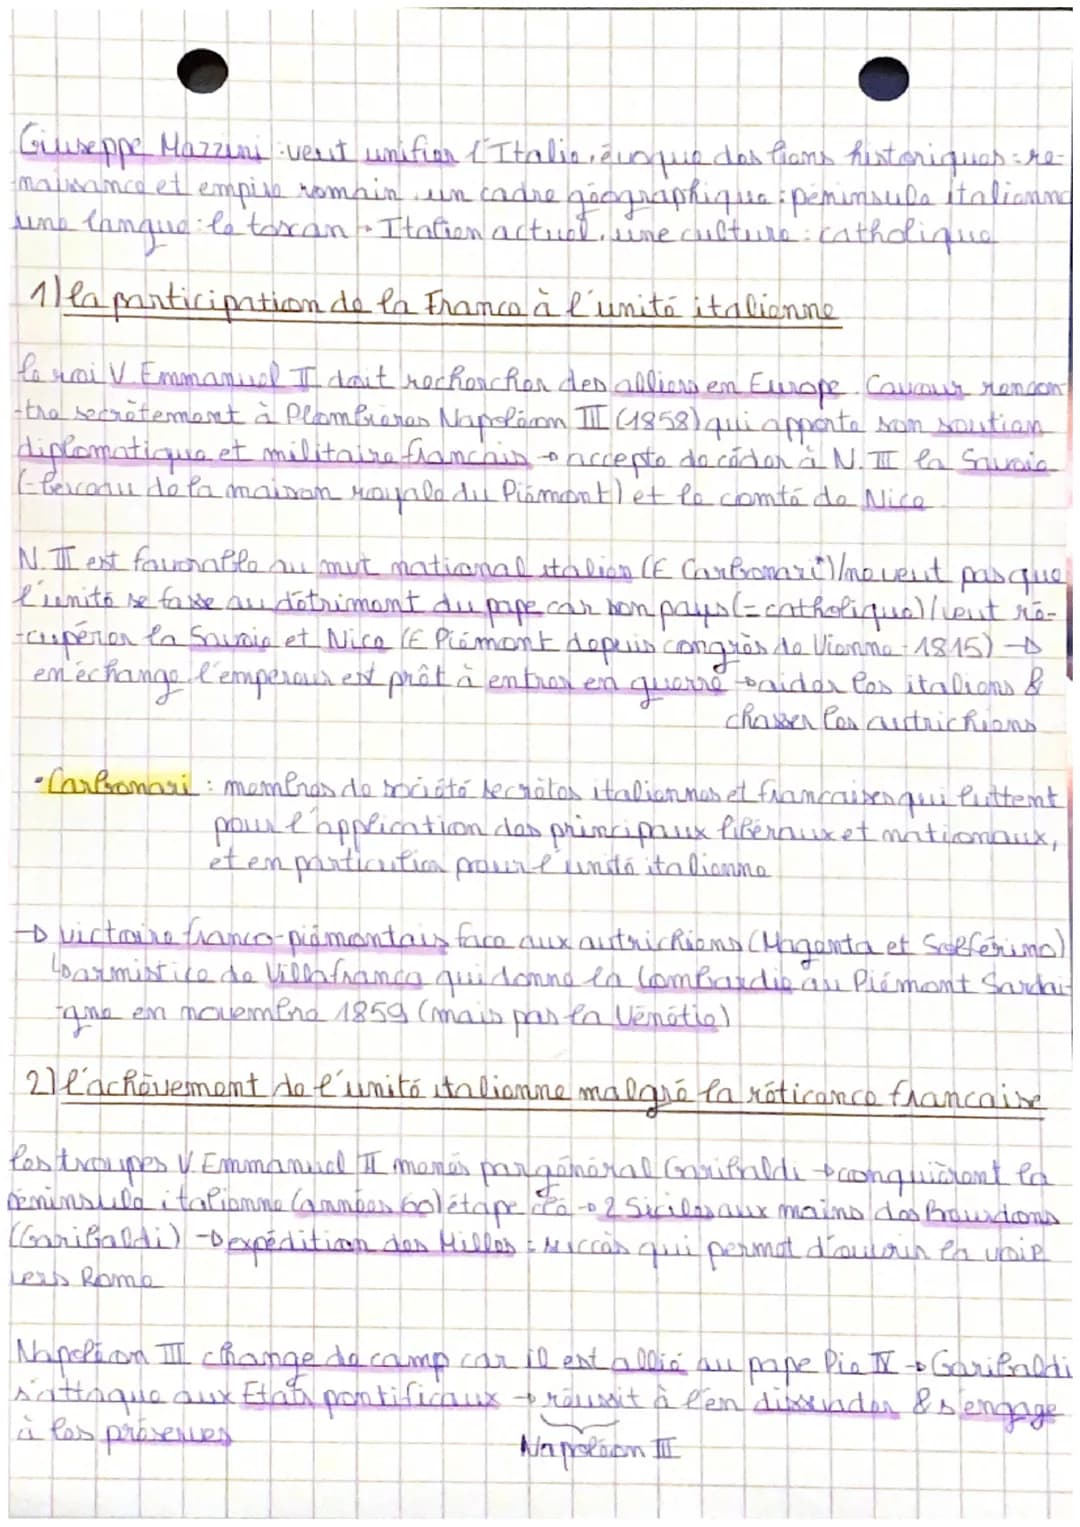 Giuseppe Mazzini : veut unifier l'Italie, évoque des liens historiques : re-
naissance et empire romain, un cadre géographique : péninsule italienne
une langue : le toscan → Italien actuel, une culture : catholique
1) la participation de la France à l'unité italienne
le roi V. Emmanuel II doit rechercher des alliers en Europe. Cavour rencon-
-tre secrètement à Plombières Napoléon III (1858) qui apporte son soutien
diplomatique et militaire francais → accepte de céder à N. III la Savoie
(= berceau de la maison royale du Piémont) et le comté de Nice
N. III est favorable au mvt national italien (∈ Carbonari*) / ne veut pas que
l'unité se fasse au détriment du pape car son pays (= catholique) / veut ré-
-cupérer la Savoie et Nice (∈ Piémont depuis congrès de Vienne - 1815) →
en échange, l'empereur est prêt à entrer en guerre → aider les italiens &
chasser les autrichiens
• Carbonari : membres de société secrètes italiennes et francaises qui luttent
pour l'application des principaux libéraux et nationaux,
et en particulier pour l'unité italienne
→ victoire franco-piémontais face aux autrichiens (Magenta et Solférino)
↳ armistice de Villafranca qui donne la Lombardie au Piémont Sardai-
-gne en novembre 1859 (mais pas la Vénétie)
2) l'achèvement de l'unité italienne malgré la réticence francaise
les troupes V. Emmanuel II menés par général Garibaldi → conquièrent la
péninsule italienne (années 60) étape clé → 2 Siciles aux mains des Bourdons
(Garibaldi) → expédition des Milles : succès qui permet d'ouvrir la voie
vers Rome
Napoléon III change de camp car il est allié au pape Pie IX → Garibaldi
s'attaque aux Etats pontificaux → réussit à l'en dissuader & s'engage
à les préserves
Napoléon III